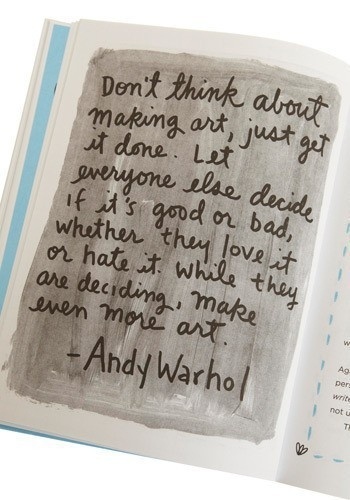 Don't think about
making art, just get
it done. Let
everyone else decide
if it's good or bad,
whether they love it
or hate it. While they
are deciding, make
even more art.
- Andy Warhol
w
Ag
pers
write
not u
Th